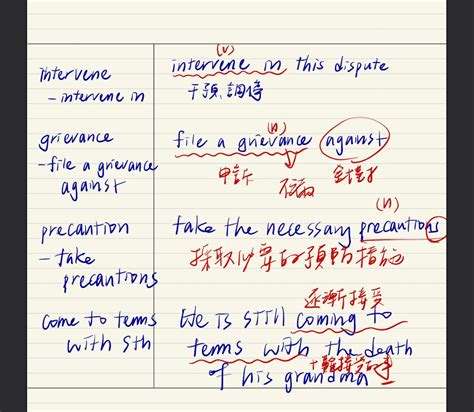 intervene
- intervene in
(v)
intervene in this dispute
干預,調停
grievance
- file a grievance
against
(n)
file a grievance against
申訴 針對
precaution
- take
precautions
(n)
take the necessary precautions
採取必要的預防措施
come to terms
with sth
逐漸接受
We is still coming to
terms with the death
of his grandma
+難接受的事